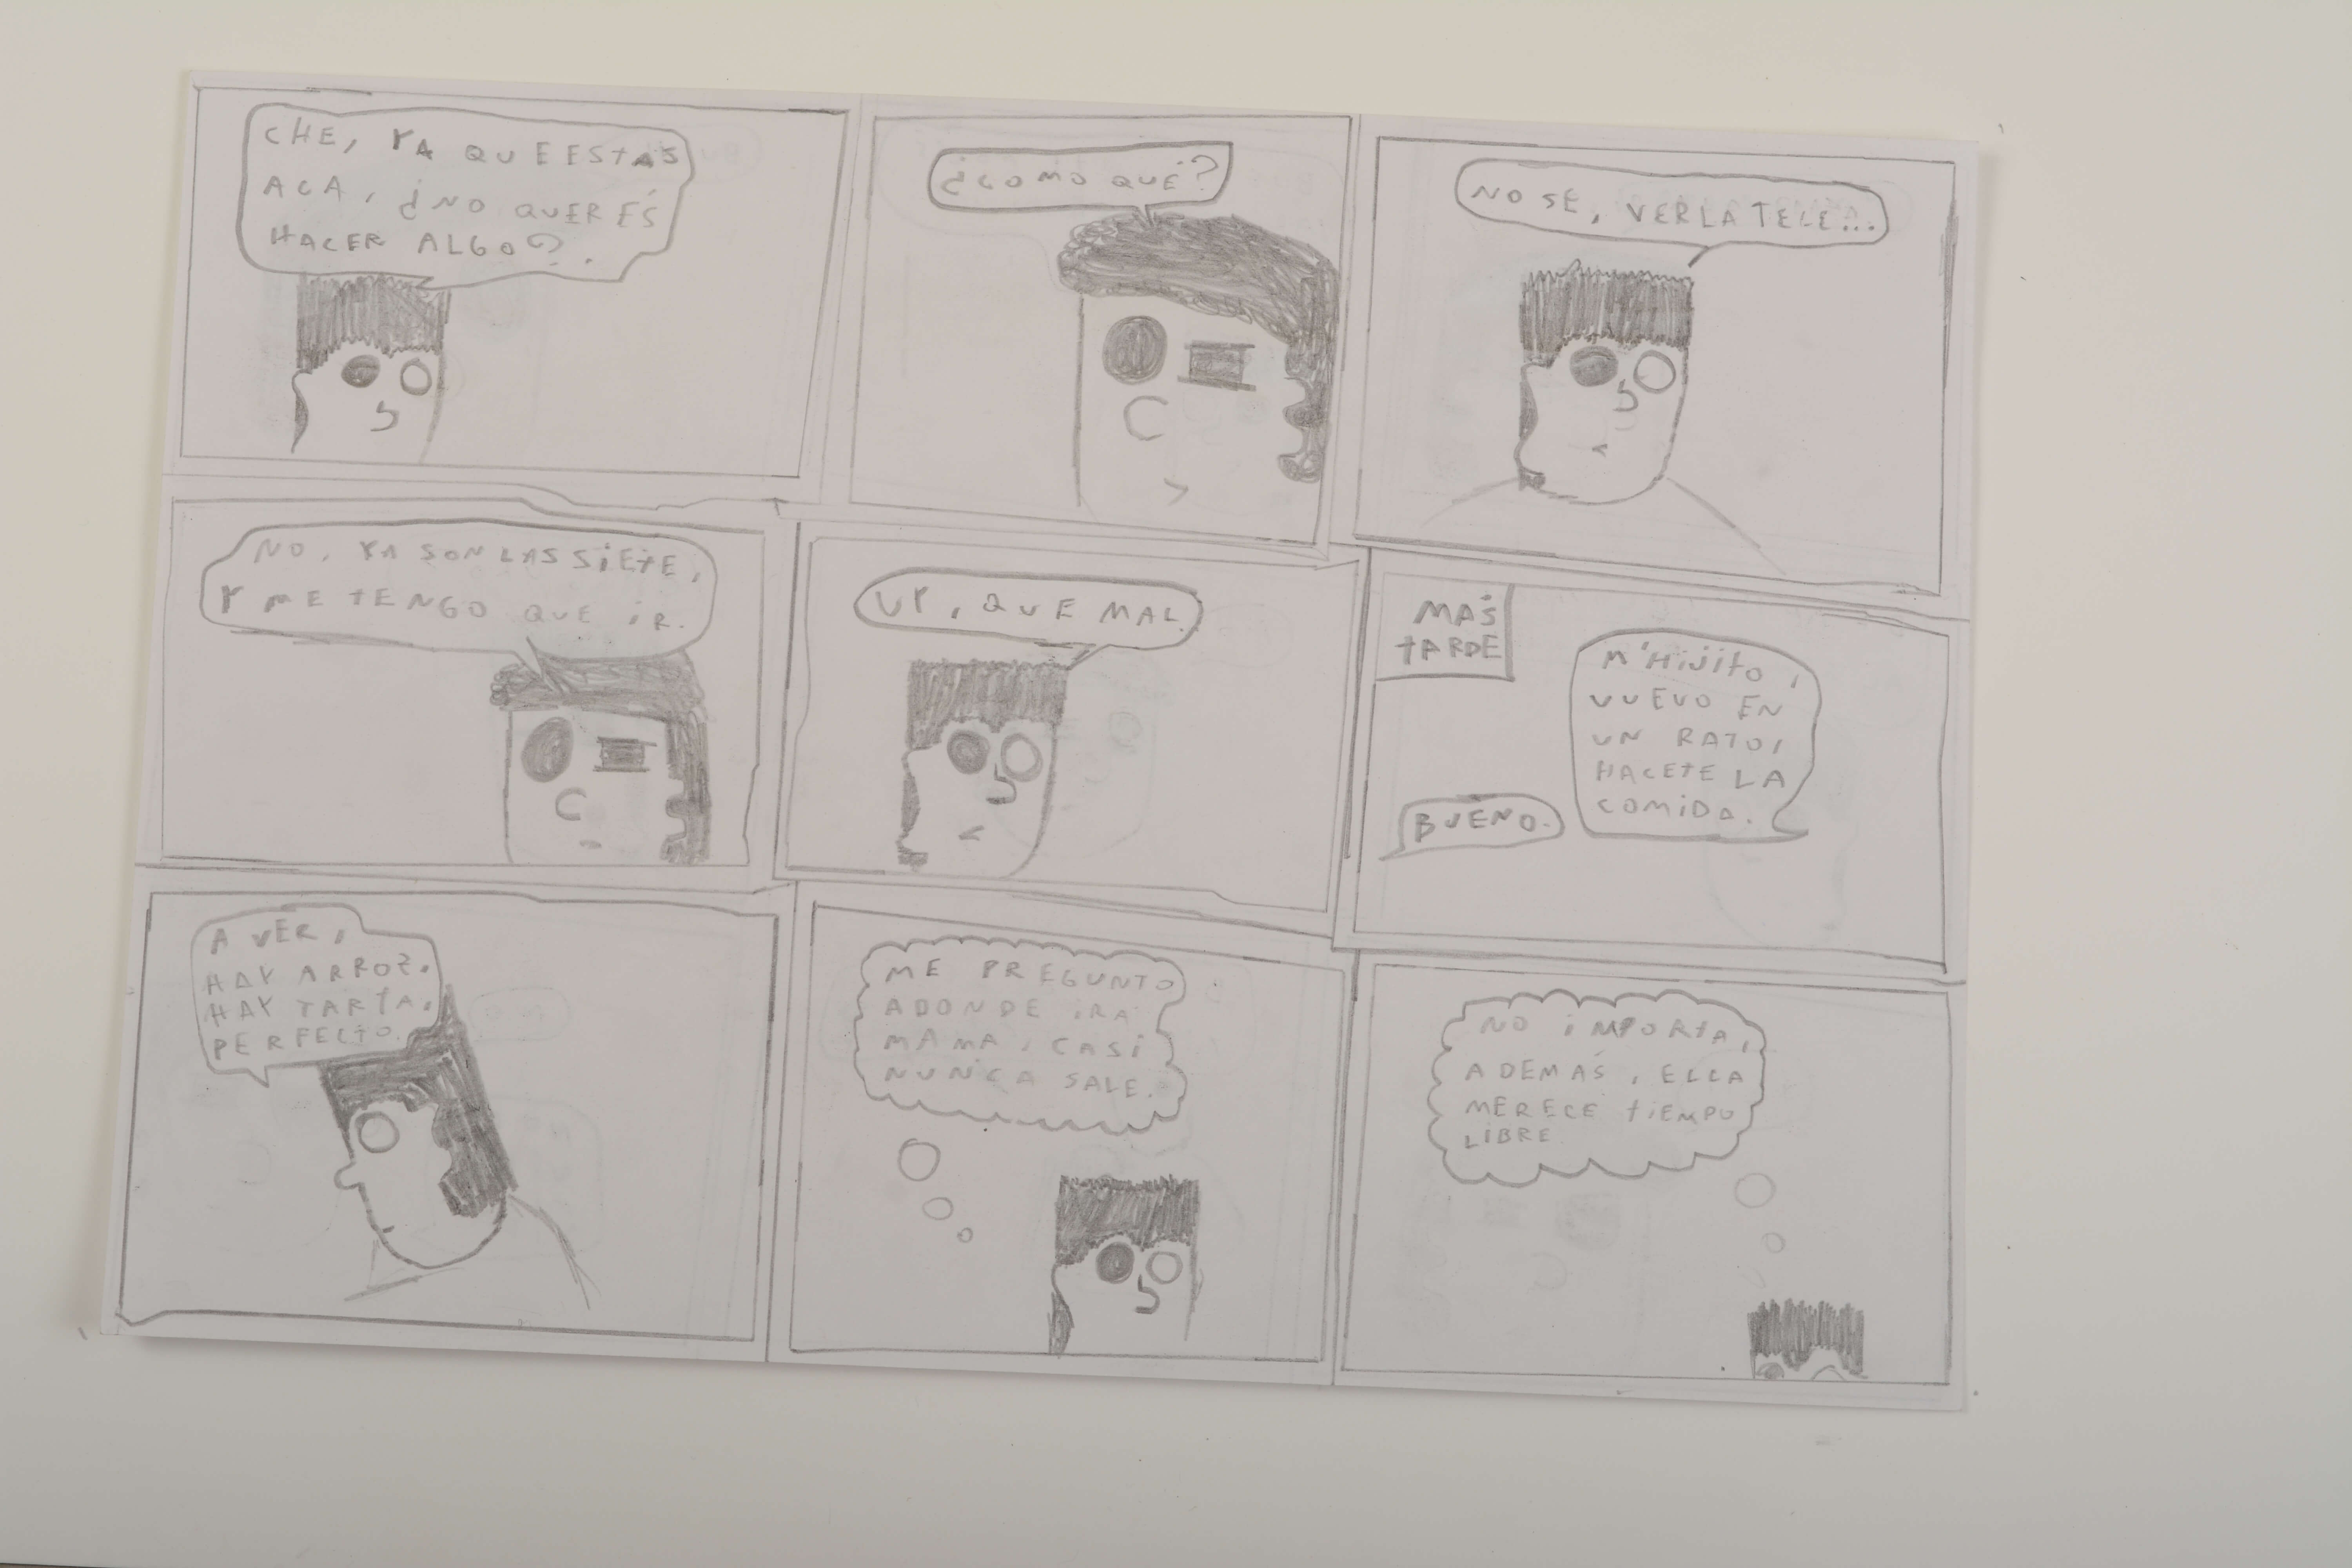 CHE, YA QUE ESTAS
ACA, ¿NO QUERÉS
HACER ALGO?.
¿COMO QUÉ?
NO SE, VER LA TELE...
NO, YA SON LAS SIETE,
Y ME TENGO QUE IR.
UY, QUE MAL.
MÁS
TARDE
M'HIJITO,
VUEVO EN
UN RATO,
HACETE LA
COMIDA.
BUENO.
A VER,
HAY ARROZ.
HAY TARTA.
PERFECTO.
ME PREGUNTO
ADONDE IRA
MAMA, CASI
NUNCA SALE.
NO IMPORTA,
ADEMÁS, ELLA
MERECE TIEMPO
LIBRE.